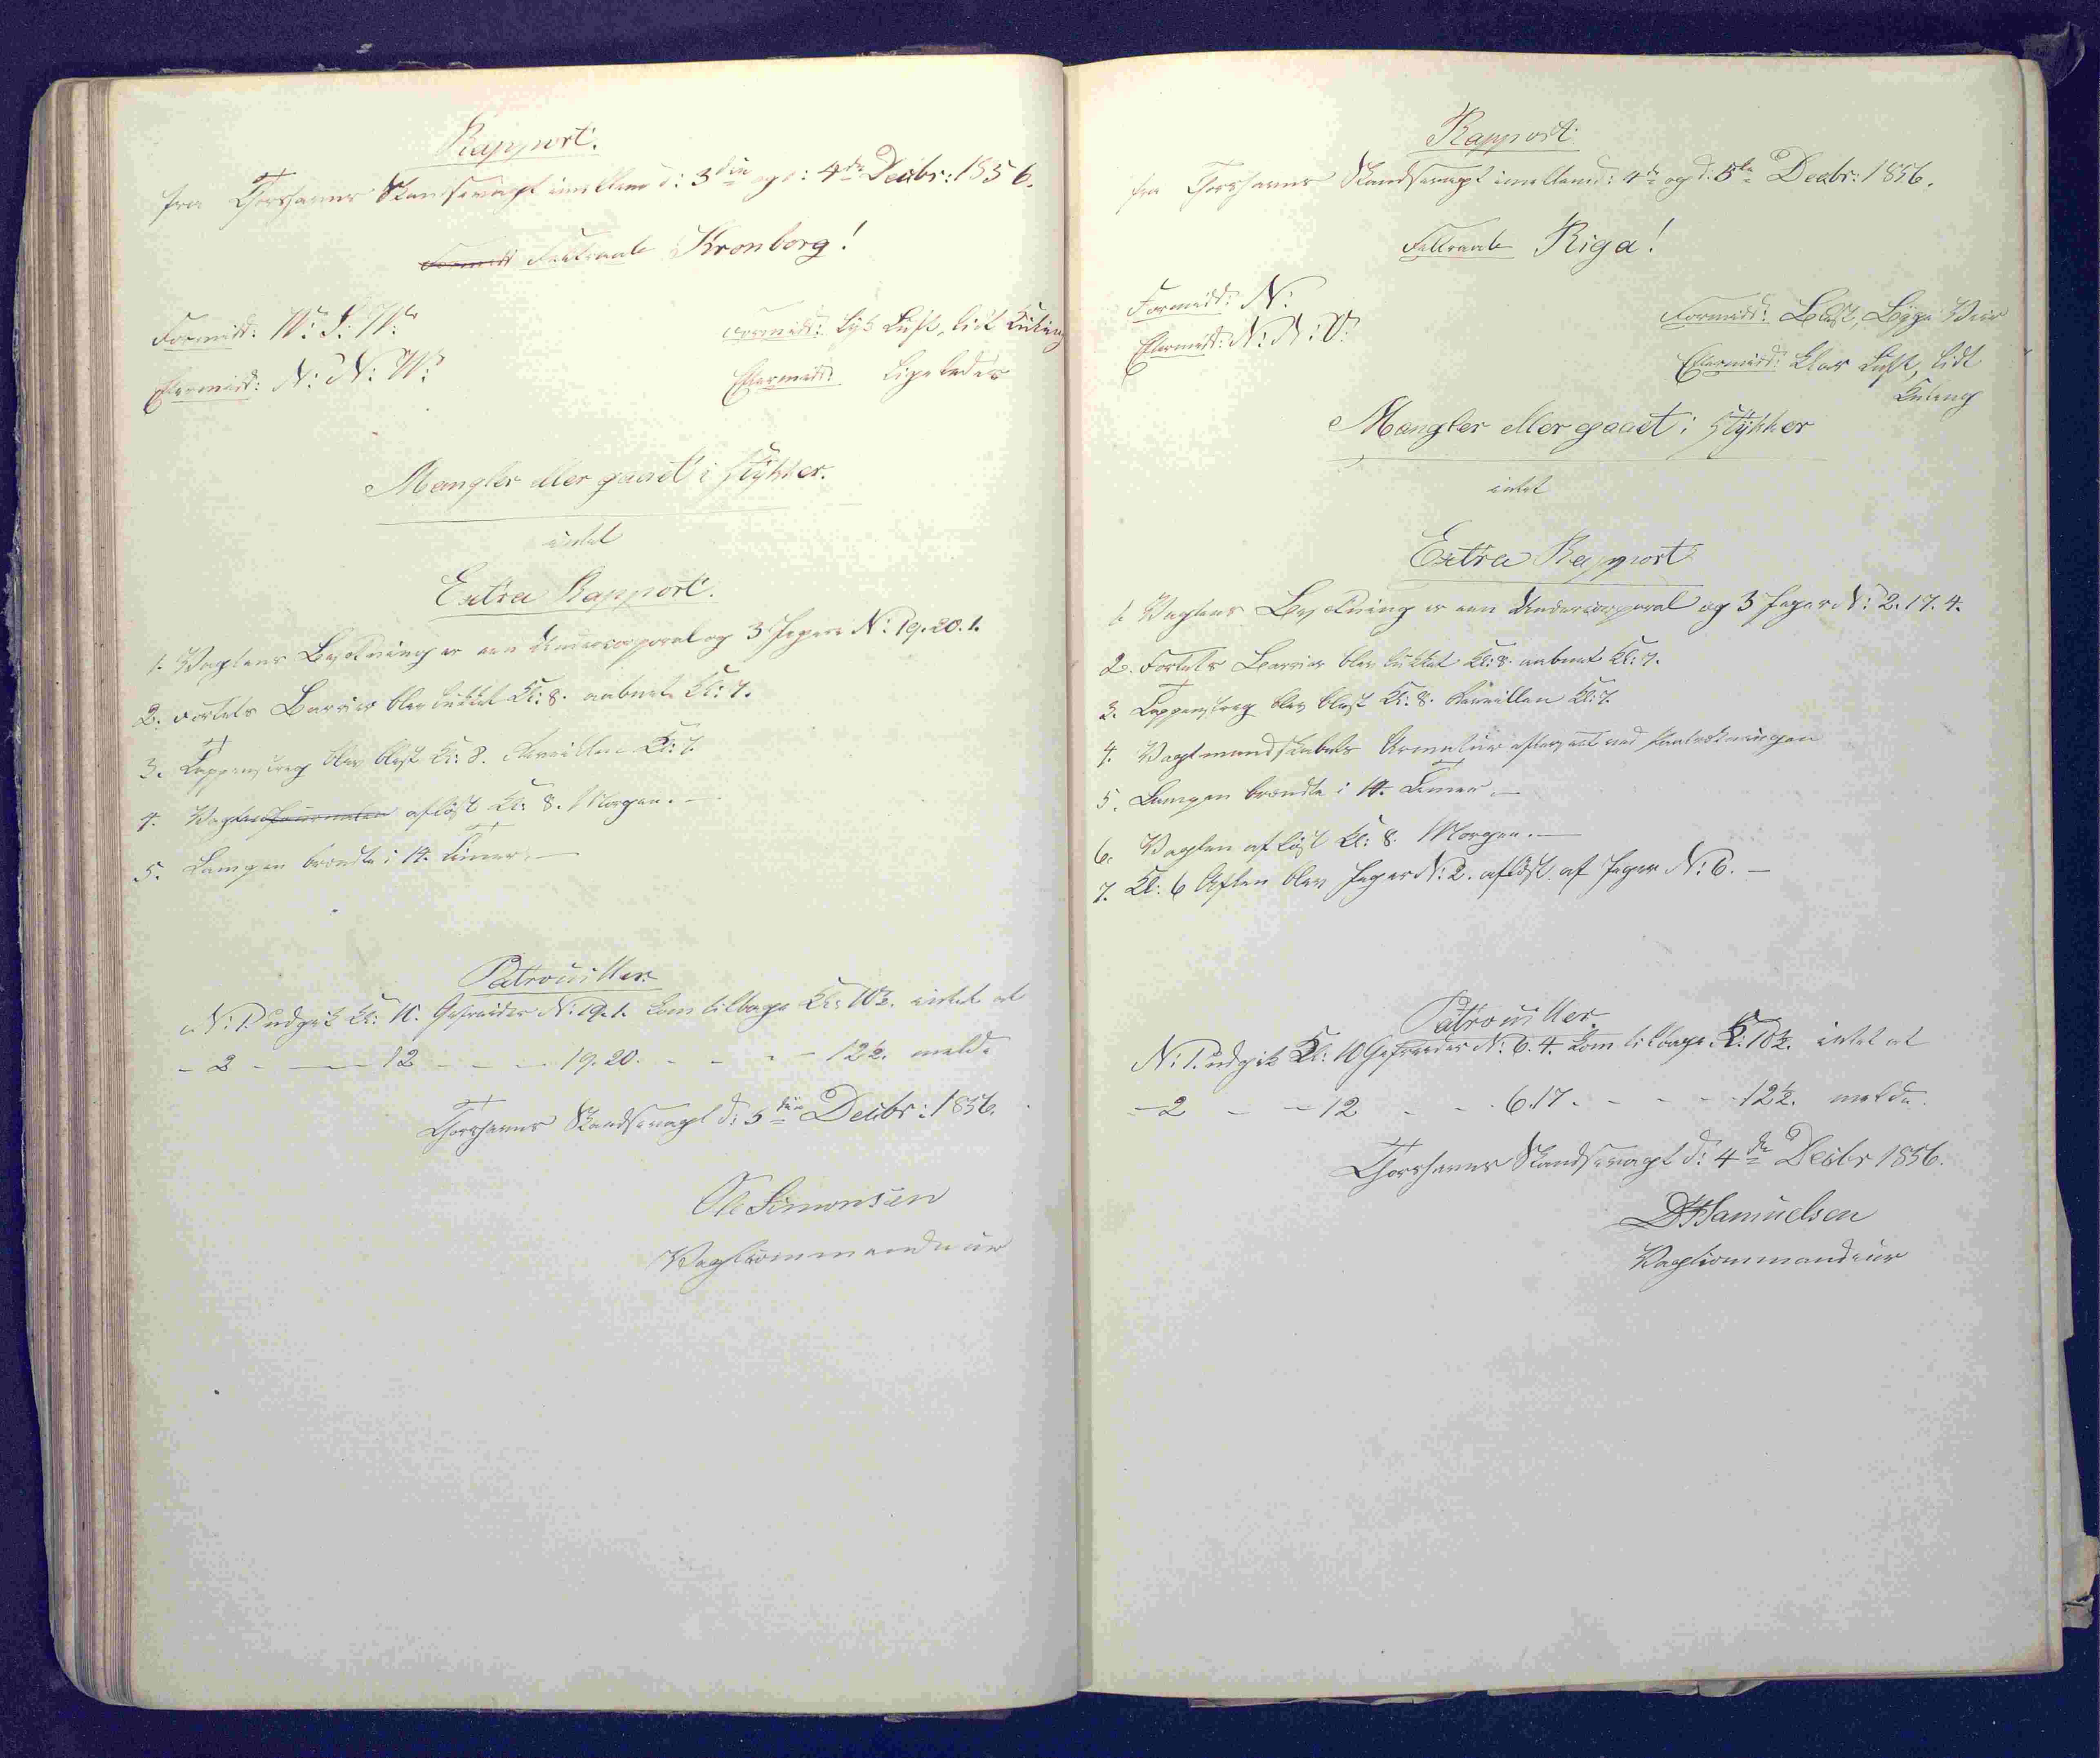 Rapport.
fra Thorshavns Skandsevagt imellem d: 3die og d: 4de Decbr: 1856.
Formidd Feltraab Kronborg!
Formidd: W: S: W:
Formidd: tyk Luft, lidt Kuling
Eftermidd: N: N: W:
Eftermidd: ligeledes
Mangler eller gaaet i Stykker.
intet
Extra Rapport.
1. Vagtens Besætning er een Undercorporal og 3 Jægere N: 19. 20. 1.
2. Fortets Barrier blev lukket Kl: 8. aabnet Kl: 7.
3. Tappenstreg blev blæst Kl: 8. Reveillen Kl: 7.
4. Vagten Journalen afløst Kl: 8. Morgen. —
5. Lampen brændte i 14. Timer. —
Patrouiller
N: 1. udgik Kl: 10. Gefreider N: 19. 1. kom tilbage Kl: 10½. intet at
- 2 - — 12 - - - 19. 20. - - - - 12½. melde
Thorshavns Skandsevagt d: 3die Decbr: 1856.
Ole Simonsen
Vagtcommandeur
Rapport.
fra Torshavns Skandsevagt imellem d: 4de og d: 5te Decbr: 1856.
Feltraab Riga!
Formidd: N:
Formidd: Blæst, Byge Veir
Eftermidd: N: N: O:
Eftermidd: klar Luft, lidt
Kuling
Mangler eller gaaet i Stykker
intet
Extra Rapport
1. Vagtens Besætning er een Undercorporal og 3 Jæger N: 2. 17. 4.
2. Fortets Barrier blev lukket Kl: 8. aabnet Kl: 7.
3. Tappenstreg blev blæst Kl: 8. Reveillen Kl: 7.
4. Vagtmandskabets Armatur efterseet ved
5. Lampen brændte i 14. Timer. —
6. Vagten afløst Kl: 8. Morgen. —
7. Kl: 6 Aften blev Jæger N: 2. afløst af Jæger N: 6. —
Patrouiller.
N: 1. udgik Kl: 10 Gefreider N: 6. 4. kom tilbage K: 10½. intet at
- 2 - - 12 - - 6. 17. - - - - 12½. melde.
Thorshavns Skandsevagt d: 4de Decbr 1856.
DHSamuelsen
Vagtcommandeur